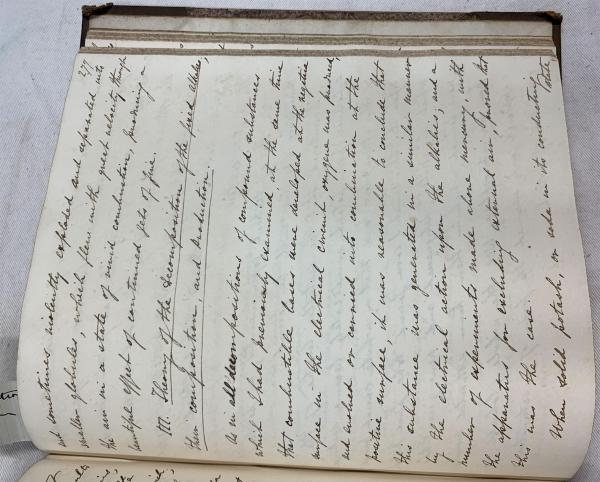 277
and sometimes violently exploded and separated into
smaller globules, which flew with great velocity through
the air in a state of vivid combustion, producing a
beautiful effect of continued jets of fire.
III. Theory of the decomposition of the fixed alkalies,
their composition, and production.
As in all decompositions of compound substances
which I had previously examined, at the same time
that combustible bases were developed at the negative
surface in the electrical circuit, oxygene was produced,
and evolved or carried into combination at the
positive surface, it was reasonable to conclude that
this substance was generated in a similar manner
by the electrical action upon the alkalies; and a
number of experiments made above mercury, with
the apparatus for excluding external air, proved that
this was the case.
When solid potash, or soda in its conducting
state,